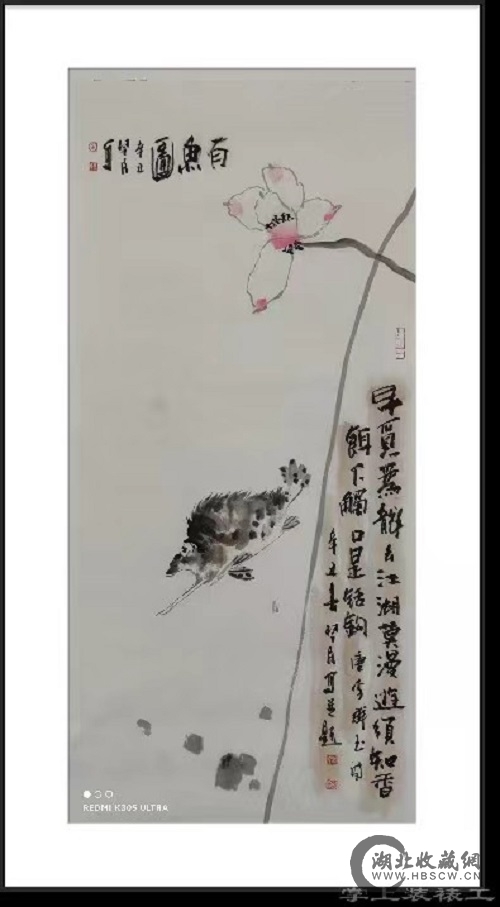 百魚圖
辛丑
早覓為龍去江湖莫漫遊須知香
餌下觸口是銛鉤 唐李群玉诗
辛丑春
月寫並題
REDMI K30S ULTRA
湖北收藏網
WWW.HBSCW.CN
掌上装裱工